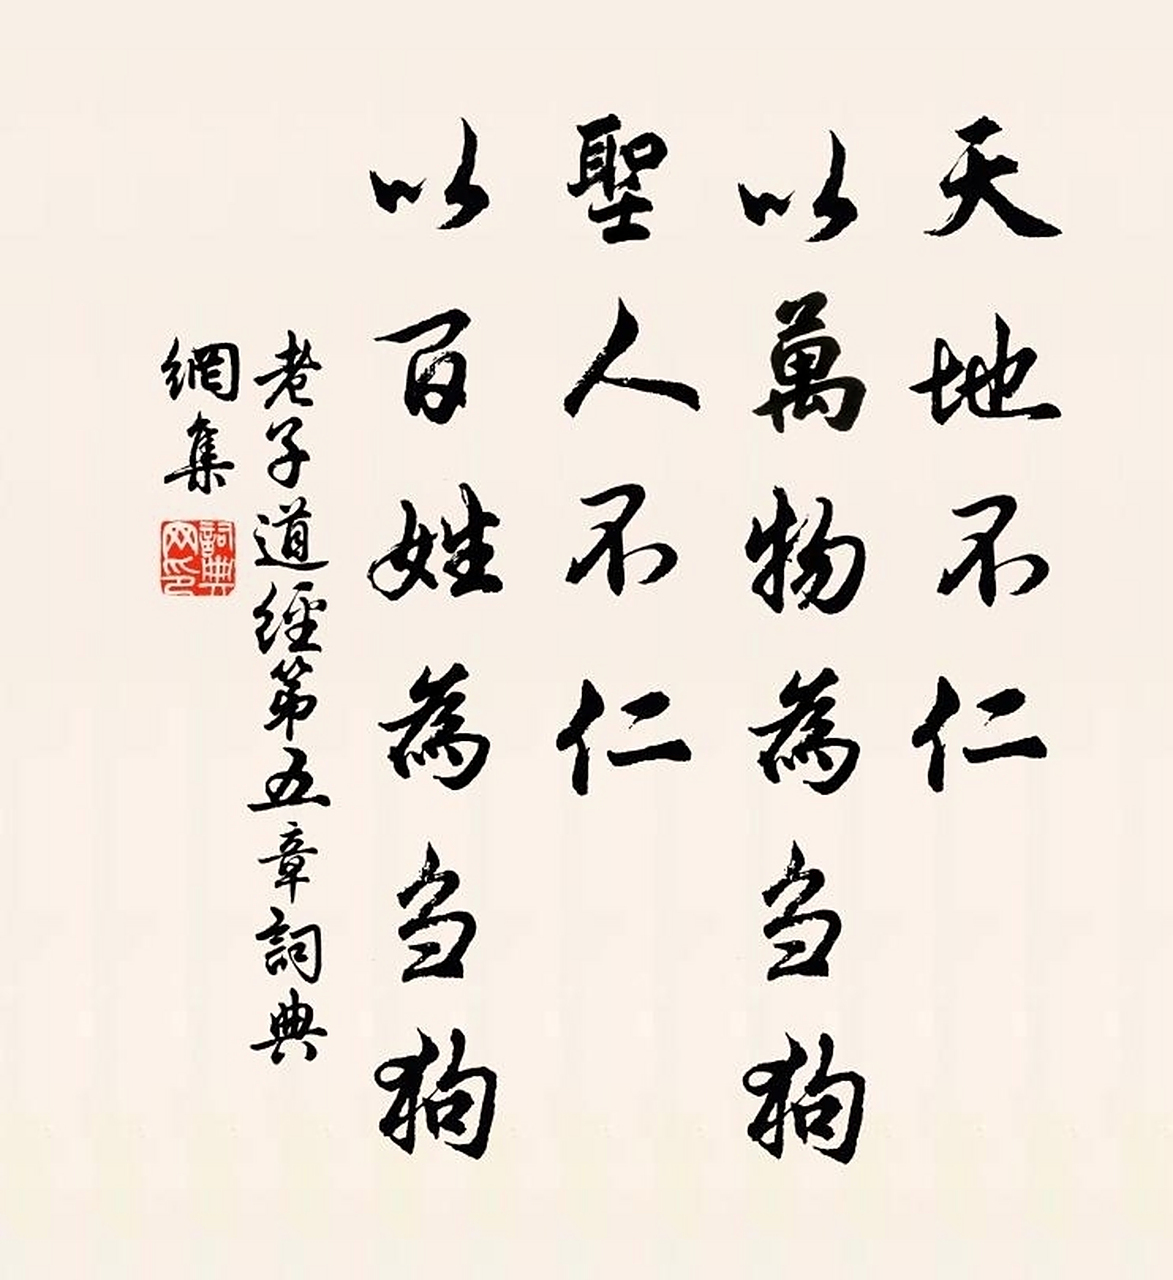 天地不仁
以萬物為刍狗
聖人不仁
以百姓為刍狗
老子道經第五章詞典
網集
詞典网印